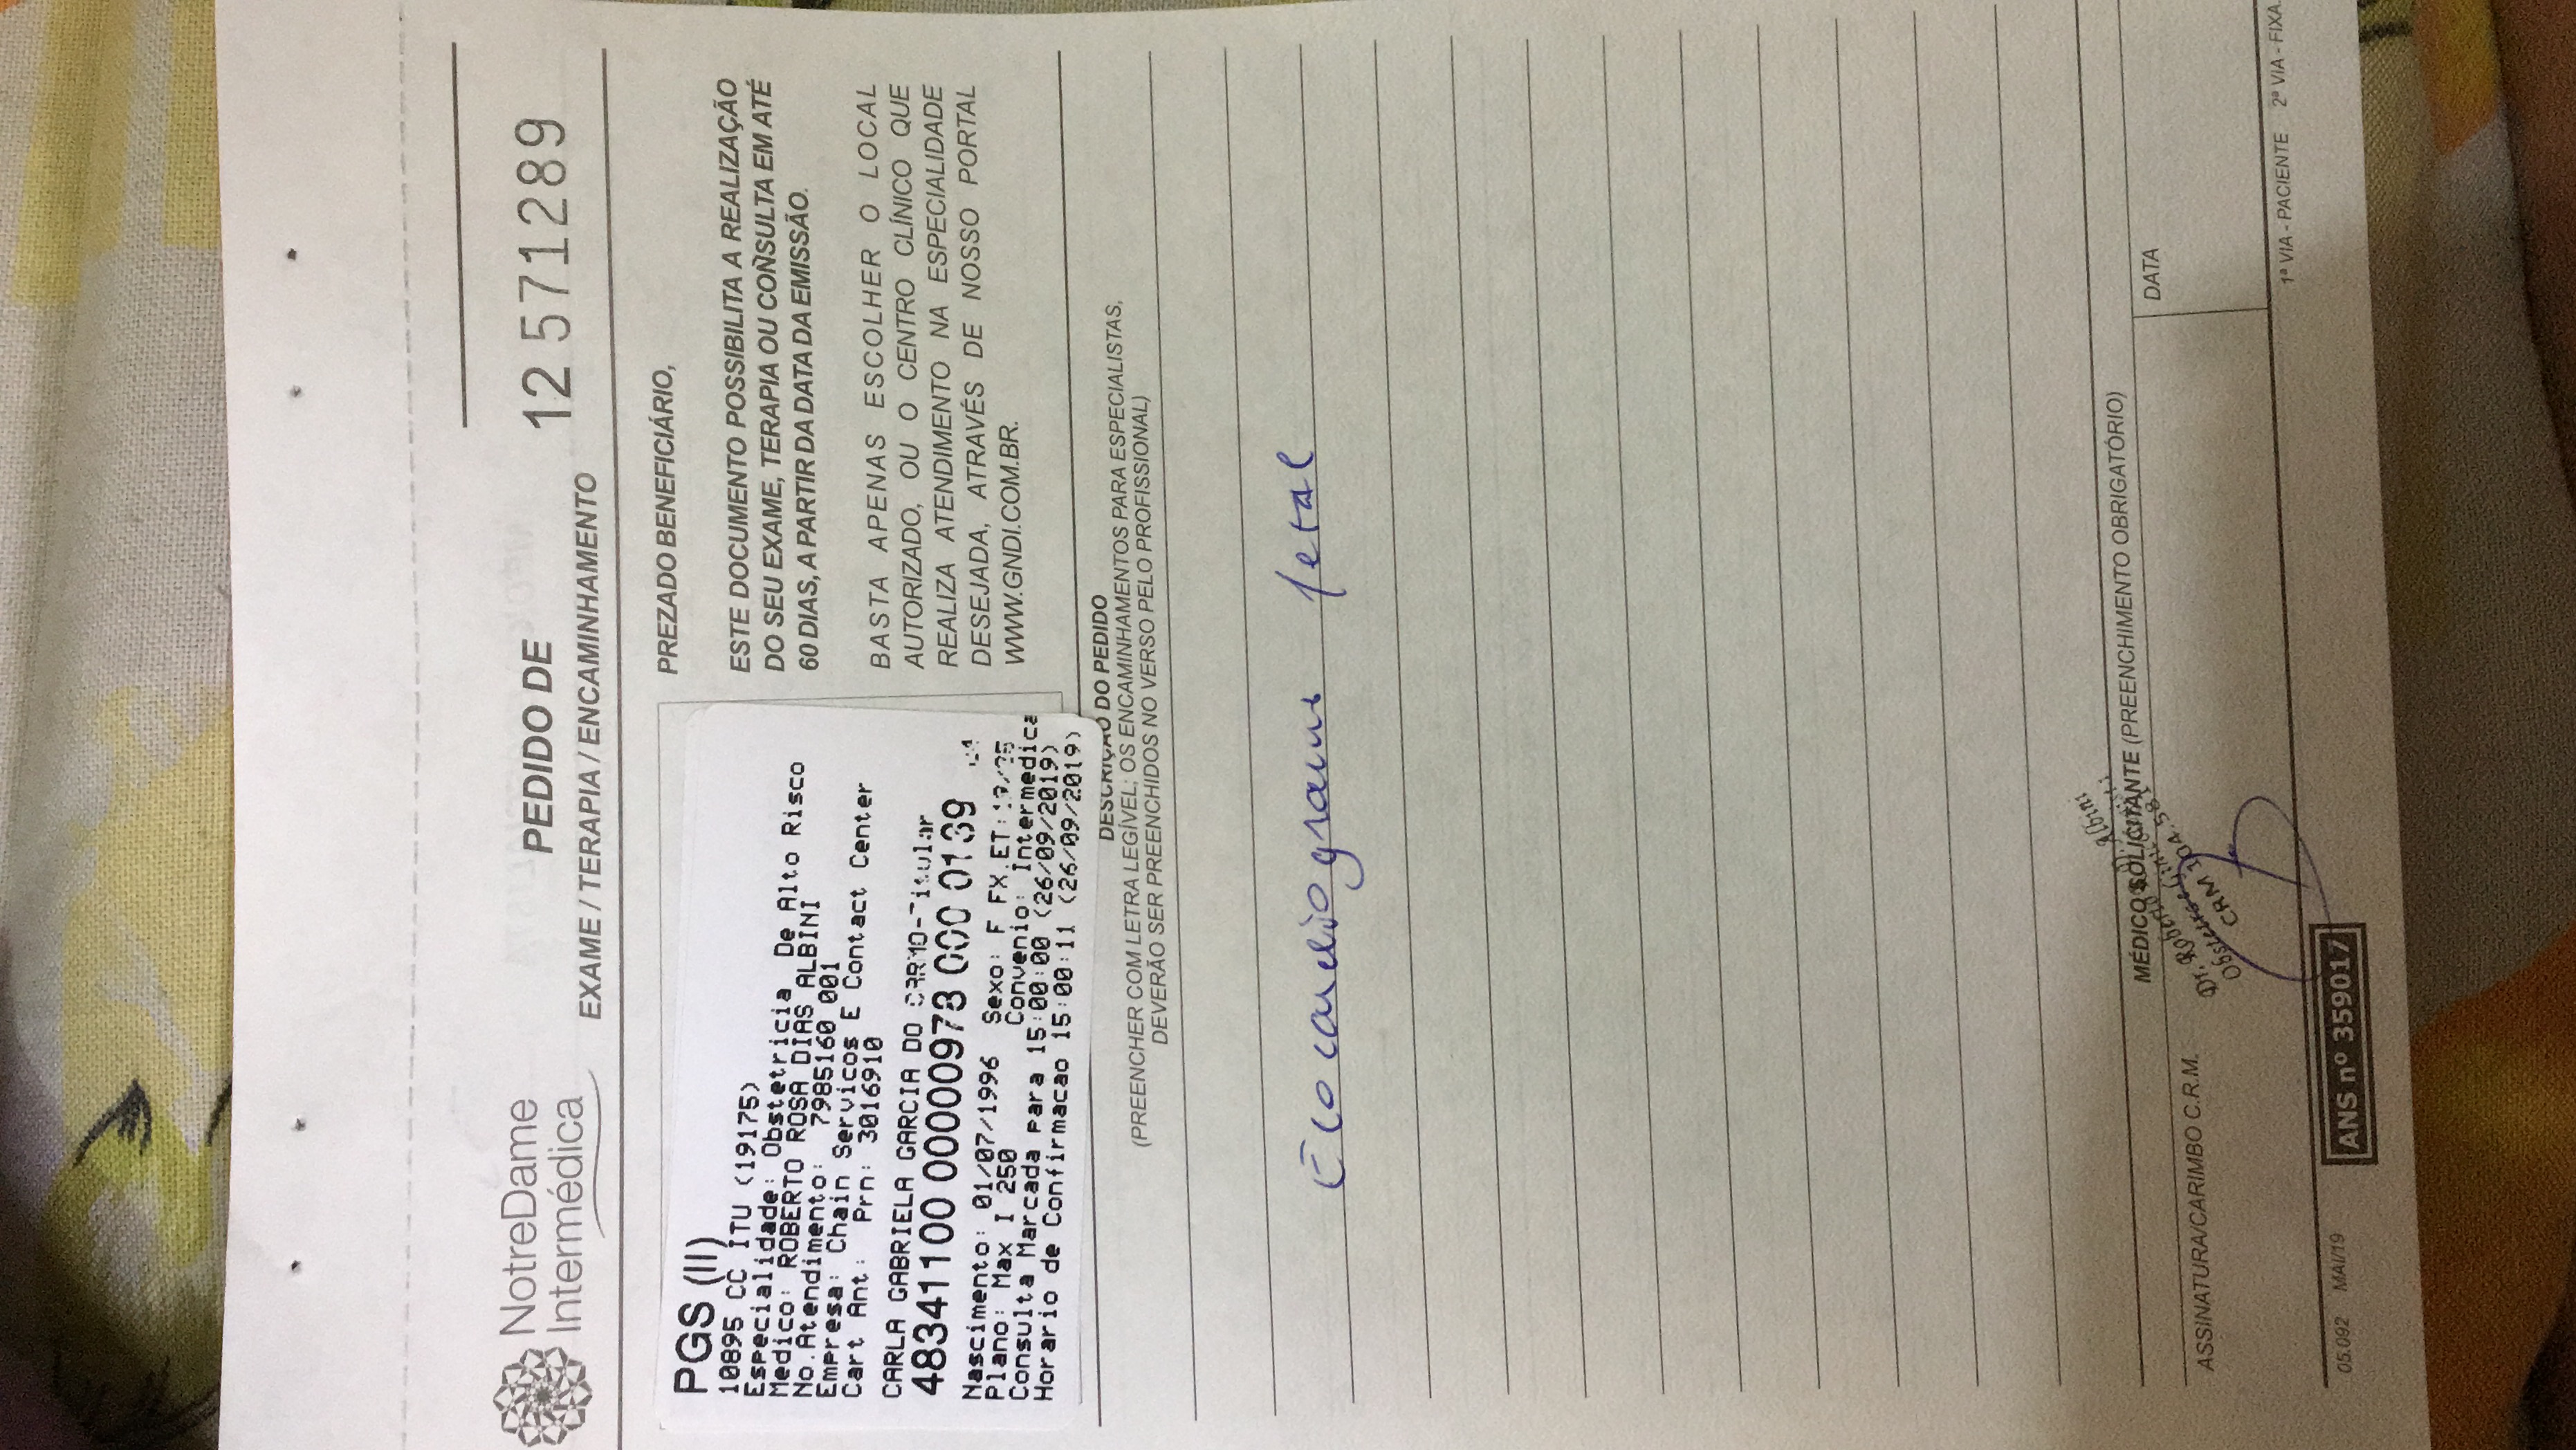 NotreDame
Intermédica
PEDIDO DE
EXAME / TERAPIA / ENCAMINHAMENTO
12571289
PGS (II)
10895 CC ITU (19175)
Especialidade: Obstetricia De Alto Risco
Medico: ROBERTO ROSA DIAS ALBINI
No.Atendimento: 7985160 001
Empresa: Chain Servicos E Contact Center
Cart Ant: Prn: 3016910
CARLA GABRIELA GARCIA DO CARMO-Titular
48341 100 00000978 000 0139
Nascimento: 01/07/1996 Sexo: F FX.ET:19/25
Plano: Max I 250 Convenio: Intermedica
Consulta Marcada Para 15:00:00 (26/09/2019)
Horario de Confirmacao 15:00:11 (26/09/2019)
PREZADO BENEFICIÁRIO,
ESTE DOCUMENTO POSSIBILITA A REALIZAÇÃO
DO SEU EXAME, TERAPIA OU CONSULTA EM ATÉ
60 DIAS, A PARTIR DA DATA DA EMISSÃO.
BASTA APENAS ESCOLHER O LOCAL
AUTORIZADO, OU O CENTRO CLÍNICO QUE
REALIZA ATENDIMENTO NA ESPECIALIDADE
DESEJADA, ATRAVÉS DE NOSSO PORTAL
WWW.GNDI.COM.BR.
DESCRIÇÃO DO PEDIDO
(PREENCHER COM LETRA LEGÍVEL; OS ENCAMINHAMENTOS PARA ESPECIALISTAS,
DEVERÃO SER PREENCHIDOS NO VERSO PELO PROFISSIONAL)
Ecocardiograma fetal
MÉDICO SOLICITANTE (PREENCHIMENTO OBRIGATÓRIO)
DATA
Dr. Roberto Albini
CRM
ASSINATURA/CARIMBO C.R.M.
1ª VIA - PACIENTE 2ª VIA - FIXA
05.092 MAI/19
ANS nº 359017